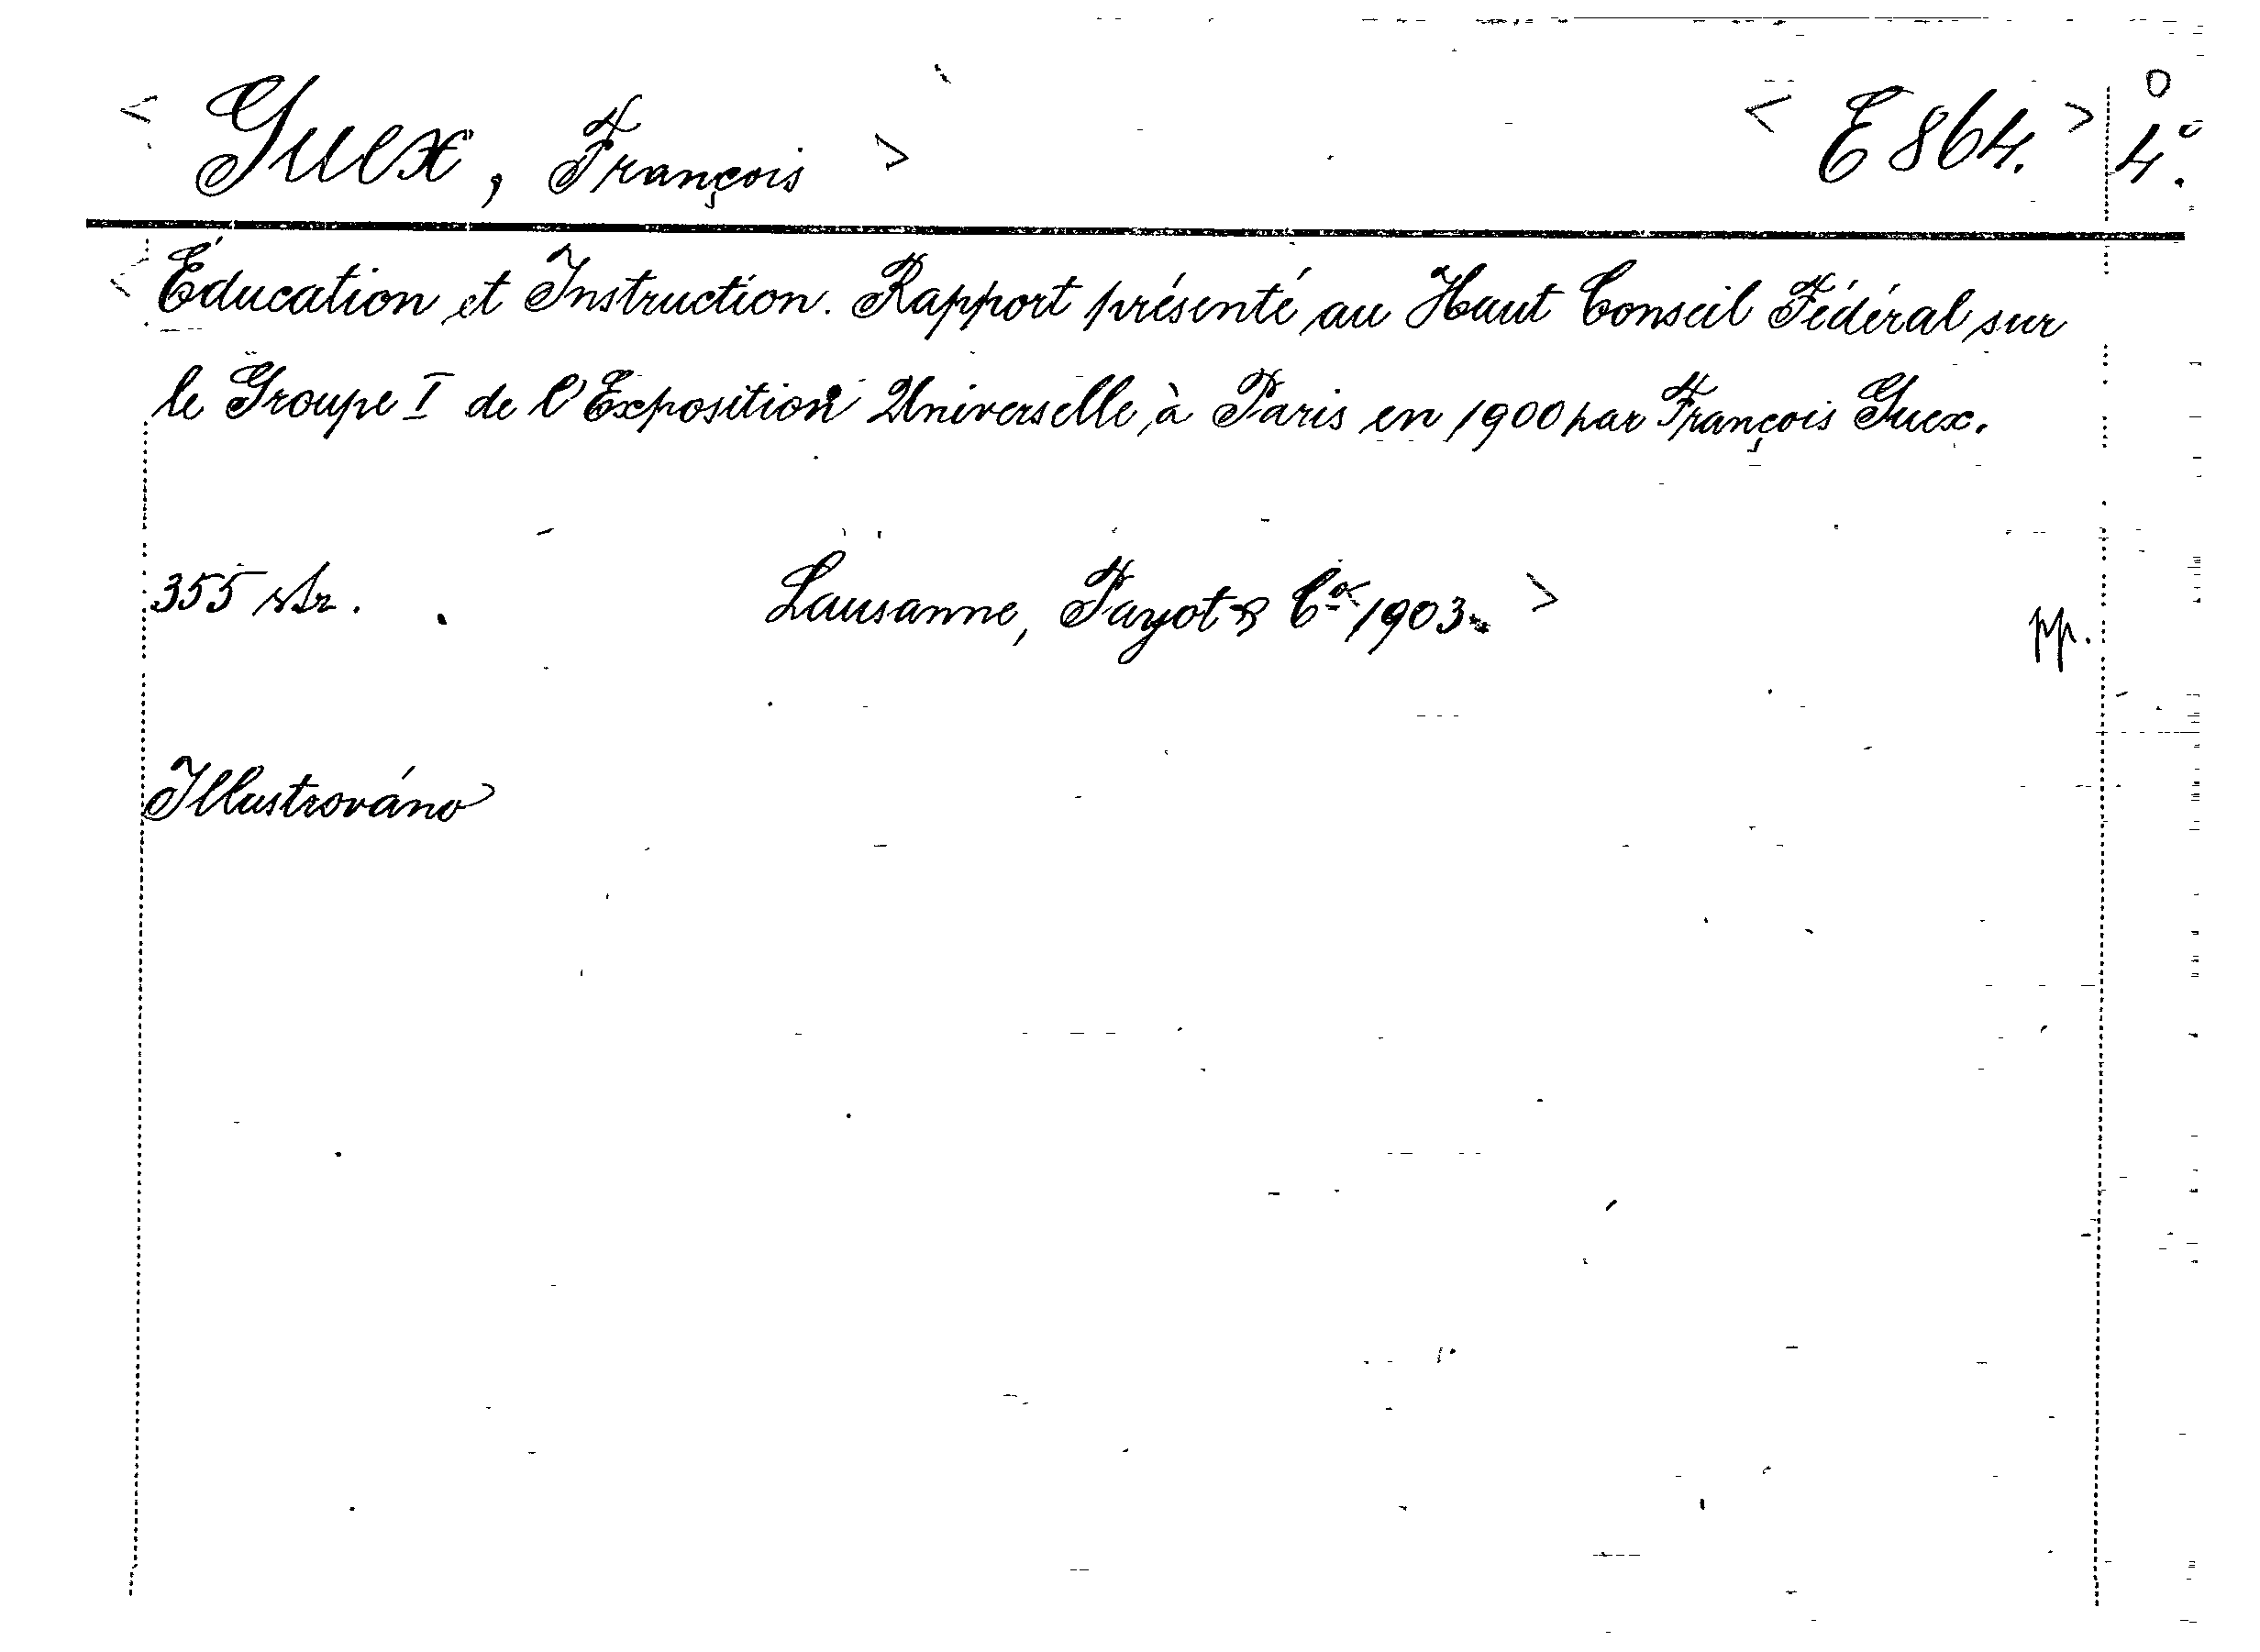 < Guex, François > < E 864. > 4°.
< Éducation et Instruction. Rapport présenté au Haut Conseil Fédéral sur
le Groupe I de l'Exposition Universelle à Paris en 1900 par François Guex.
355 str. Lausanne, Payot & Co 1903. > pp.
Illustrováno